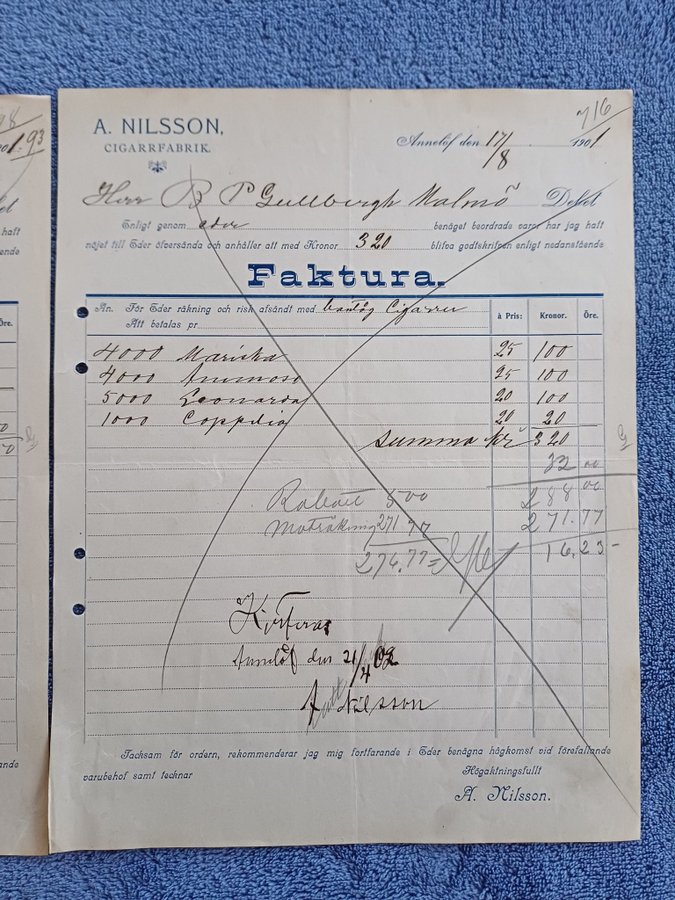 716
A. NILSSON,
CIGARRFABRIK.
Annelöf den 17/8 1901
Herr B P Gullbergh Malmö Debet
Enligt genom eder benäget beordrade varor har jag haft
nöjet till Eder öfversända och anhåller att med Kronor 320 blifva godtskrifven enligt nedanstående
Faktura.
An. För Eder räkning och risk afsändt med Cigarrer à Pris: Kronor. Öre.
Att betalas pr
4000 Mariska 25 100
4000 25 100
5000 Leonardas 20 100
1000 Coppelia 20 20
Summa kr 320
32 00
Rabatt 500 288 00
Moträkning 271 77 271.77
276.77 16,23-
Kvitteras
Annelöf den 21/4 02
A Nilsson
Tacksam för ordern, rekommenderar jag mig fortfarande i Eder benägna hågkomst vid förefallande
varubehof samt tecknar Högaktningsfullt
A. Nilsson.
93
haft
ande
Öre.
ande